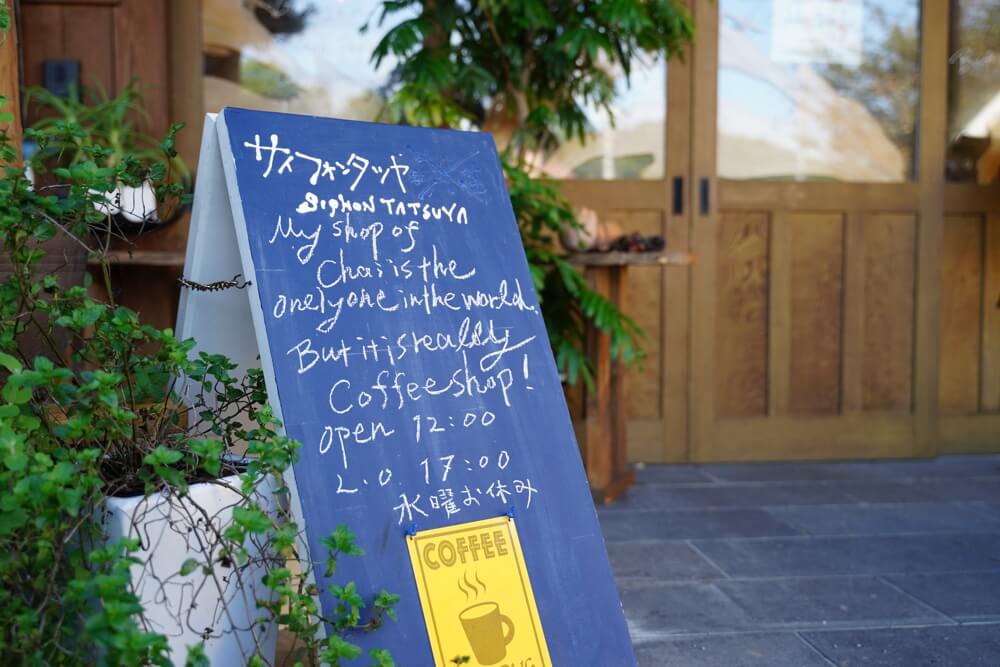 サイフォンタツヤ
SIPHON TATSUYA
My shop of
Chai is the
onely one in the world.
But it is really
Coffee shop!
open 12:00
L.O. 17:00
水曜お休み
COFFEE